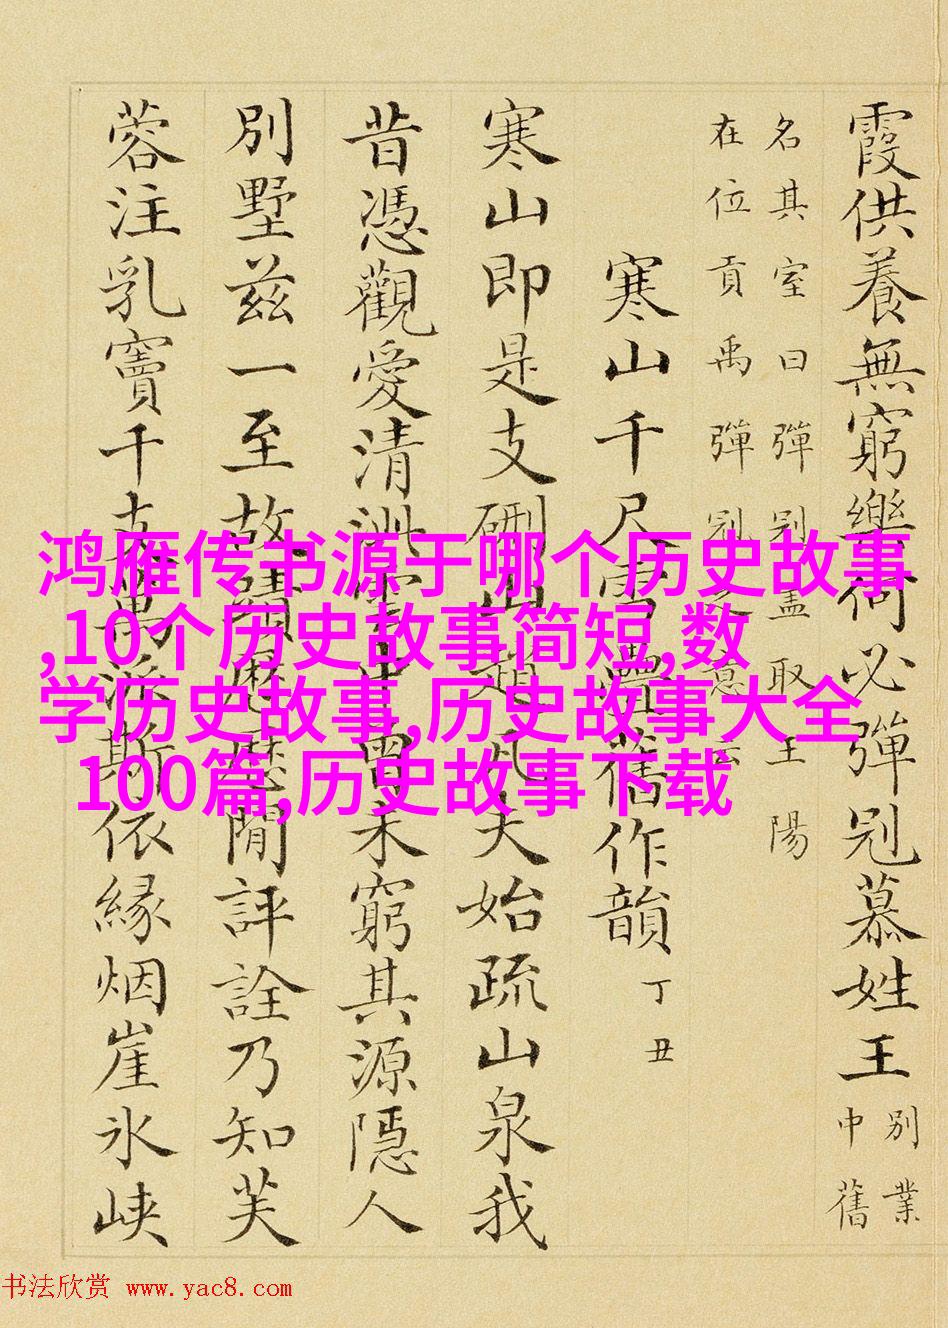 霞供養無窮樂何必彈冠慕姓王
別業
中舊
名其室曰彈冠盖取王陽
在位貢禹彈冠之意云
寒山千尺雪疊舊作韻 丁丑
寒山即是支硎山趙凡夫始疏山泉我
昔憑觀愛清曾未窮其源隱人
別墅茲一至故蹟歷歷閒評詮乃知芙
蓉注乳竇千支萬派斯依緣烟崖氷峽
鸿雁传书源于哪个历史故事
,10个历史故事简短,数
学历史故事,历史故事大全
100篇,历史故事下载
书法欣赏 www.yac8.com